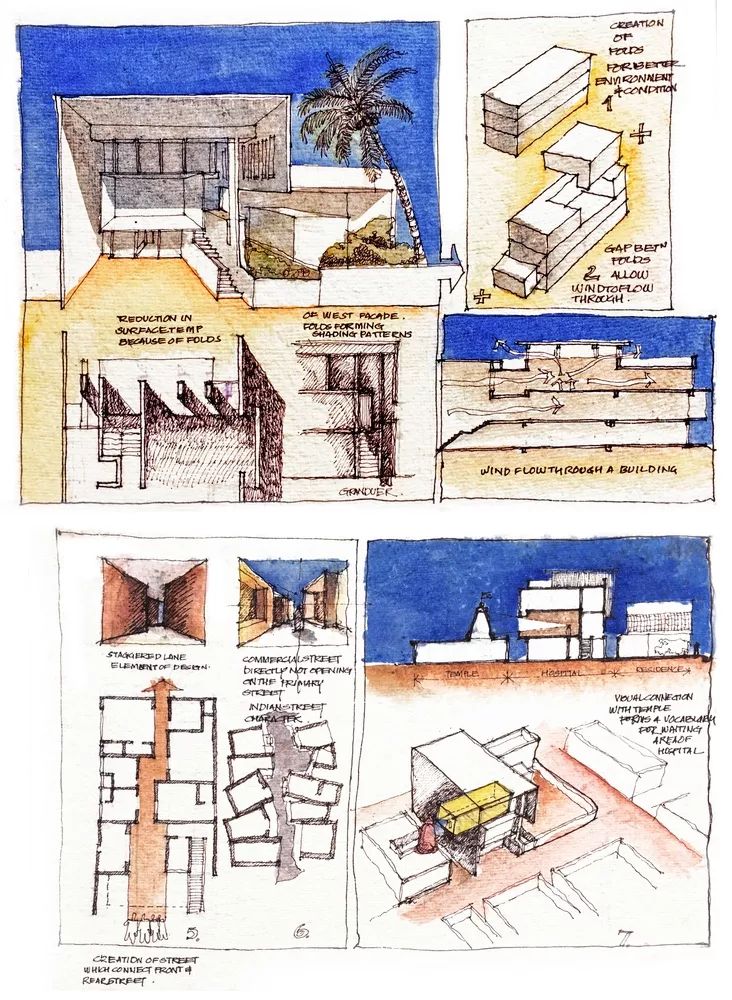 CREATION
OF
FOLDS
FOR BETTER
ENVIRONMENT
& CONDITION
1
GAP BETN
FOLDS
2 ALLOW
WIND TO FLOW
THROUGH.
REDUCTION IN
SURFACE TEMP
BECAUSE OF FOLDS
OF WEST FACADE.
FOLDS FORMING
SHADING PATTERNS
GRANDUER.
WIND FLOW THROUGH A BUILDING
STAGGERED LANE
ELEMENT OF DESIGN.
COMMERCIAL STREET
DIRECTLY NOT OPENING
ON THE PRIMARY
STREET
INDIAN STREET
CHARACTER
5.
6.
CREATION OF STREET
WHICH CONNECT FRONT &
REAR STREET.
TEMPLE
HOSPITAL
RESIDENCES
VISUAL CONNECTION
WITH TEMPLE
FORMS A VOCABULARY
FOR WAITING
AREA OF
HOSPITAL
7